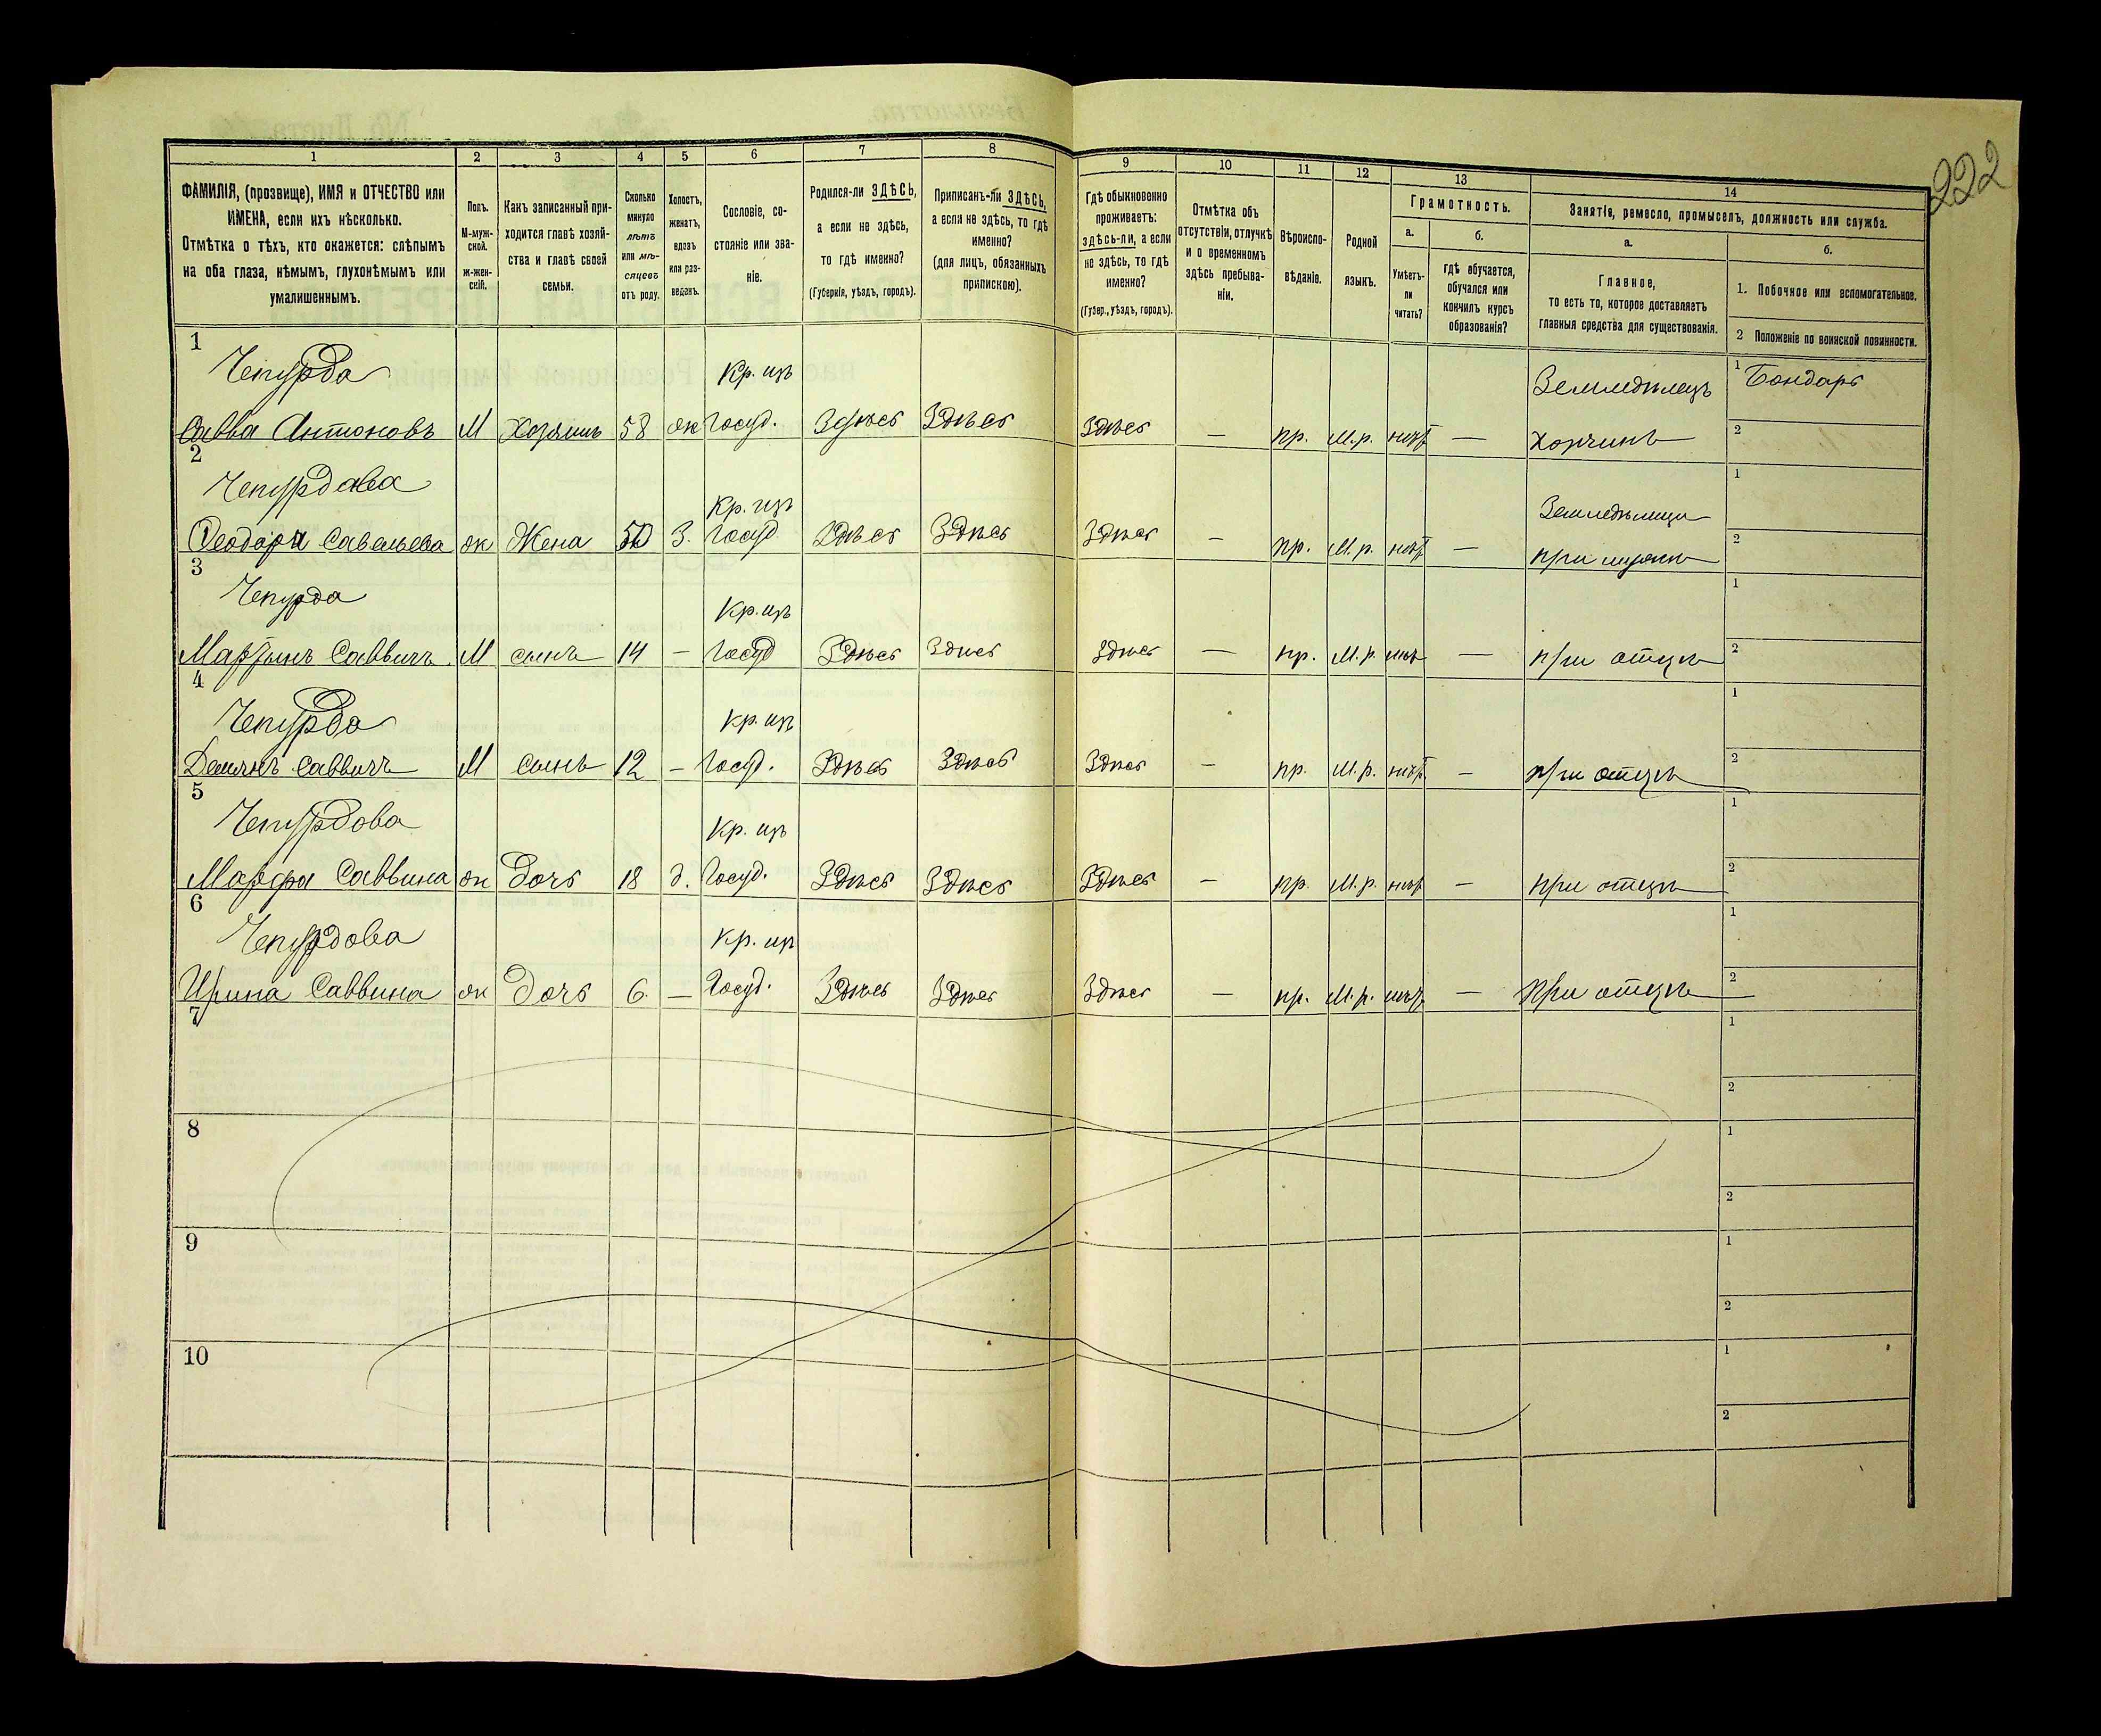 222
1 2 3 4 5 6 7 8 9 10 11 12 13 14
ФАМИЛІЯ, (прозвище), ИМЯ и ОТЧЕСТВО или
ИМЕНА, если ихъ нѣсколько.
Отмѣтка о тѣхъ, кто окажется: слѣпымъ
на оба глаза, нѣмымъ, глухонѣмымъ или
умалишеннымъ.
Полъ.
М-муж-
ской.
ж-жен-
скій.
Какъ записанный при-
ходится главѣ хозяй-
ства и главѣ своей
семьи.
Сколько
минуло
лѣтъ
или мѣ-
сяцевъ
отъ роду.
Холостъ,
женатъ,
вдовъ
или раз-
веденъ.
Сословіе, со-
стояніе или зва-
ніе.
Родился-ли ЗДѢСЬ,
а если не здѣсь,
то гдѣ именно?
(Губернія, уѣздъ, городъ).
Приписанъ-ли ЗДѢСЬ,
а если не здѣсь, то гдѣ
именно?
(для лицъ, обязанныхъ
припискою).
Гдѣ обыкновенно
проживаетъ:
здѣсь-ли, а если
не здѣсь, то гдѣ
именно?
(Губер., уѣздъ, городъ).
Отмѣтка объ
отсутствіи, отлучкѣ
и о временномъ
здѣсь пребыва-
ніи.
Вѣроиспо-
вѣданіе.
Родной
языкъ.
Грамотность.
а.
Умѣетъ-
ли
читать?
б.
Гдѣ обучается,
обучался или
кончилъ курсъ
образованія?
Занятіе, ремесло, промыселъ, должность или служба.
а.
Главное,
то есть то, которое доставляетъ
главныя средства для существованія.
б.
1. Побочное или вспомогательное.
2 Положеніе по воинской повинности.
1
Чепурда Кр. изъ Земледѣлецъ 1 Бондарь
Савва Антоновъ М Хозяинъ 58 ж Госуд. Здѣсь Здѣсь Здѣсь — пр. М.р. нѣтъ — 2
2
Чепурдова Кр. изъ Земледѣлица 1
Феодора Савельева ж Жена 50 З. Госуд Здѣсь Здѣсь Здѣсь — пр. М.р. нѣтъ — при мужѣ 2
3
Чепурда Кр. изъ 1
Мартынъ Саввичъ М сынъ 14 — Госуд Здѣсь Здѣсь Здѣсь — пр. М.р. нѣтъ — при отцѣ 2
4
Чепурда Кр. изъ 1
Демянъ Саввичъ М сынъ 12 — Госуд. Здѣсь Здѣсь Здѣсь — пр. М.р. нѣтъ — при отцѣ 2
5
Чепурдова Кр. изъ 1
Марфа Саввина ж Дочь 18 д. Госуд. Здѣсь Здѣсь Здѣсь — пр. М.р. нѣтъ — при отцѣ 2
6
Чепурдова Кр. изъ 1
Ирина Саввина ж Дочь 6. — Госуд. Здѣсь Здѣсь Здѣсь — пр. М.р. нѣтъ — При отцѣ 2
7 1
2
8 1
2
9 1
2
10 1
2